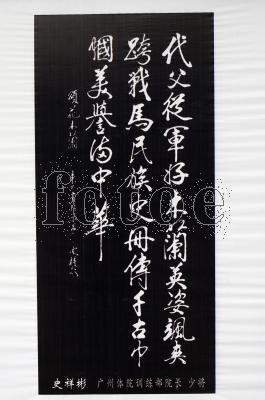 代父從軍好木蘭英姿颯爽
跨戰馬民族史冊傳千古巾
幗美譽滿中華
頌花木蘭
史祥彬 广州体院训练部院长 少将
fotoe